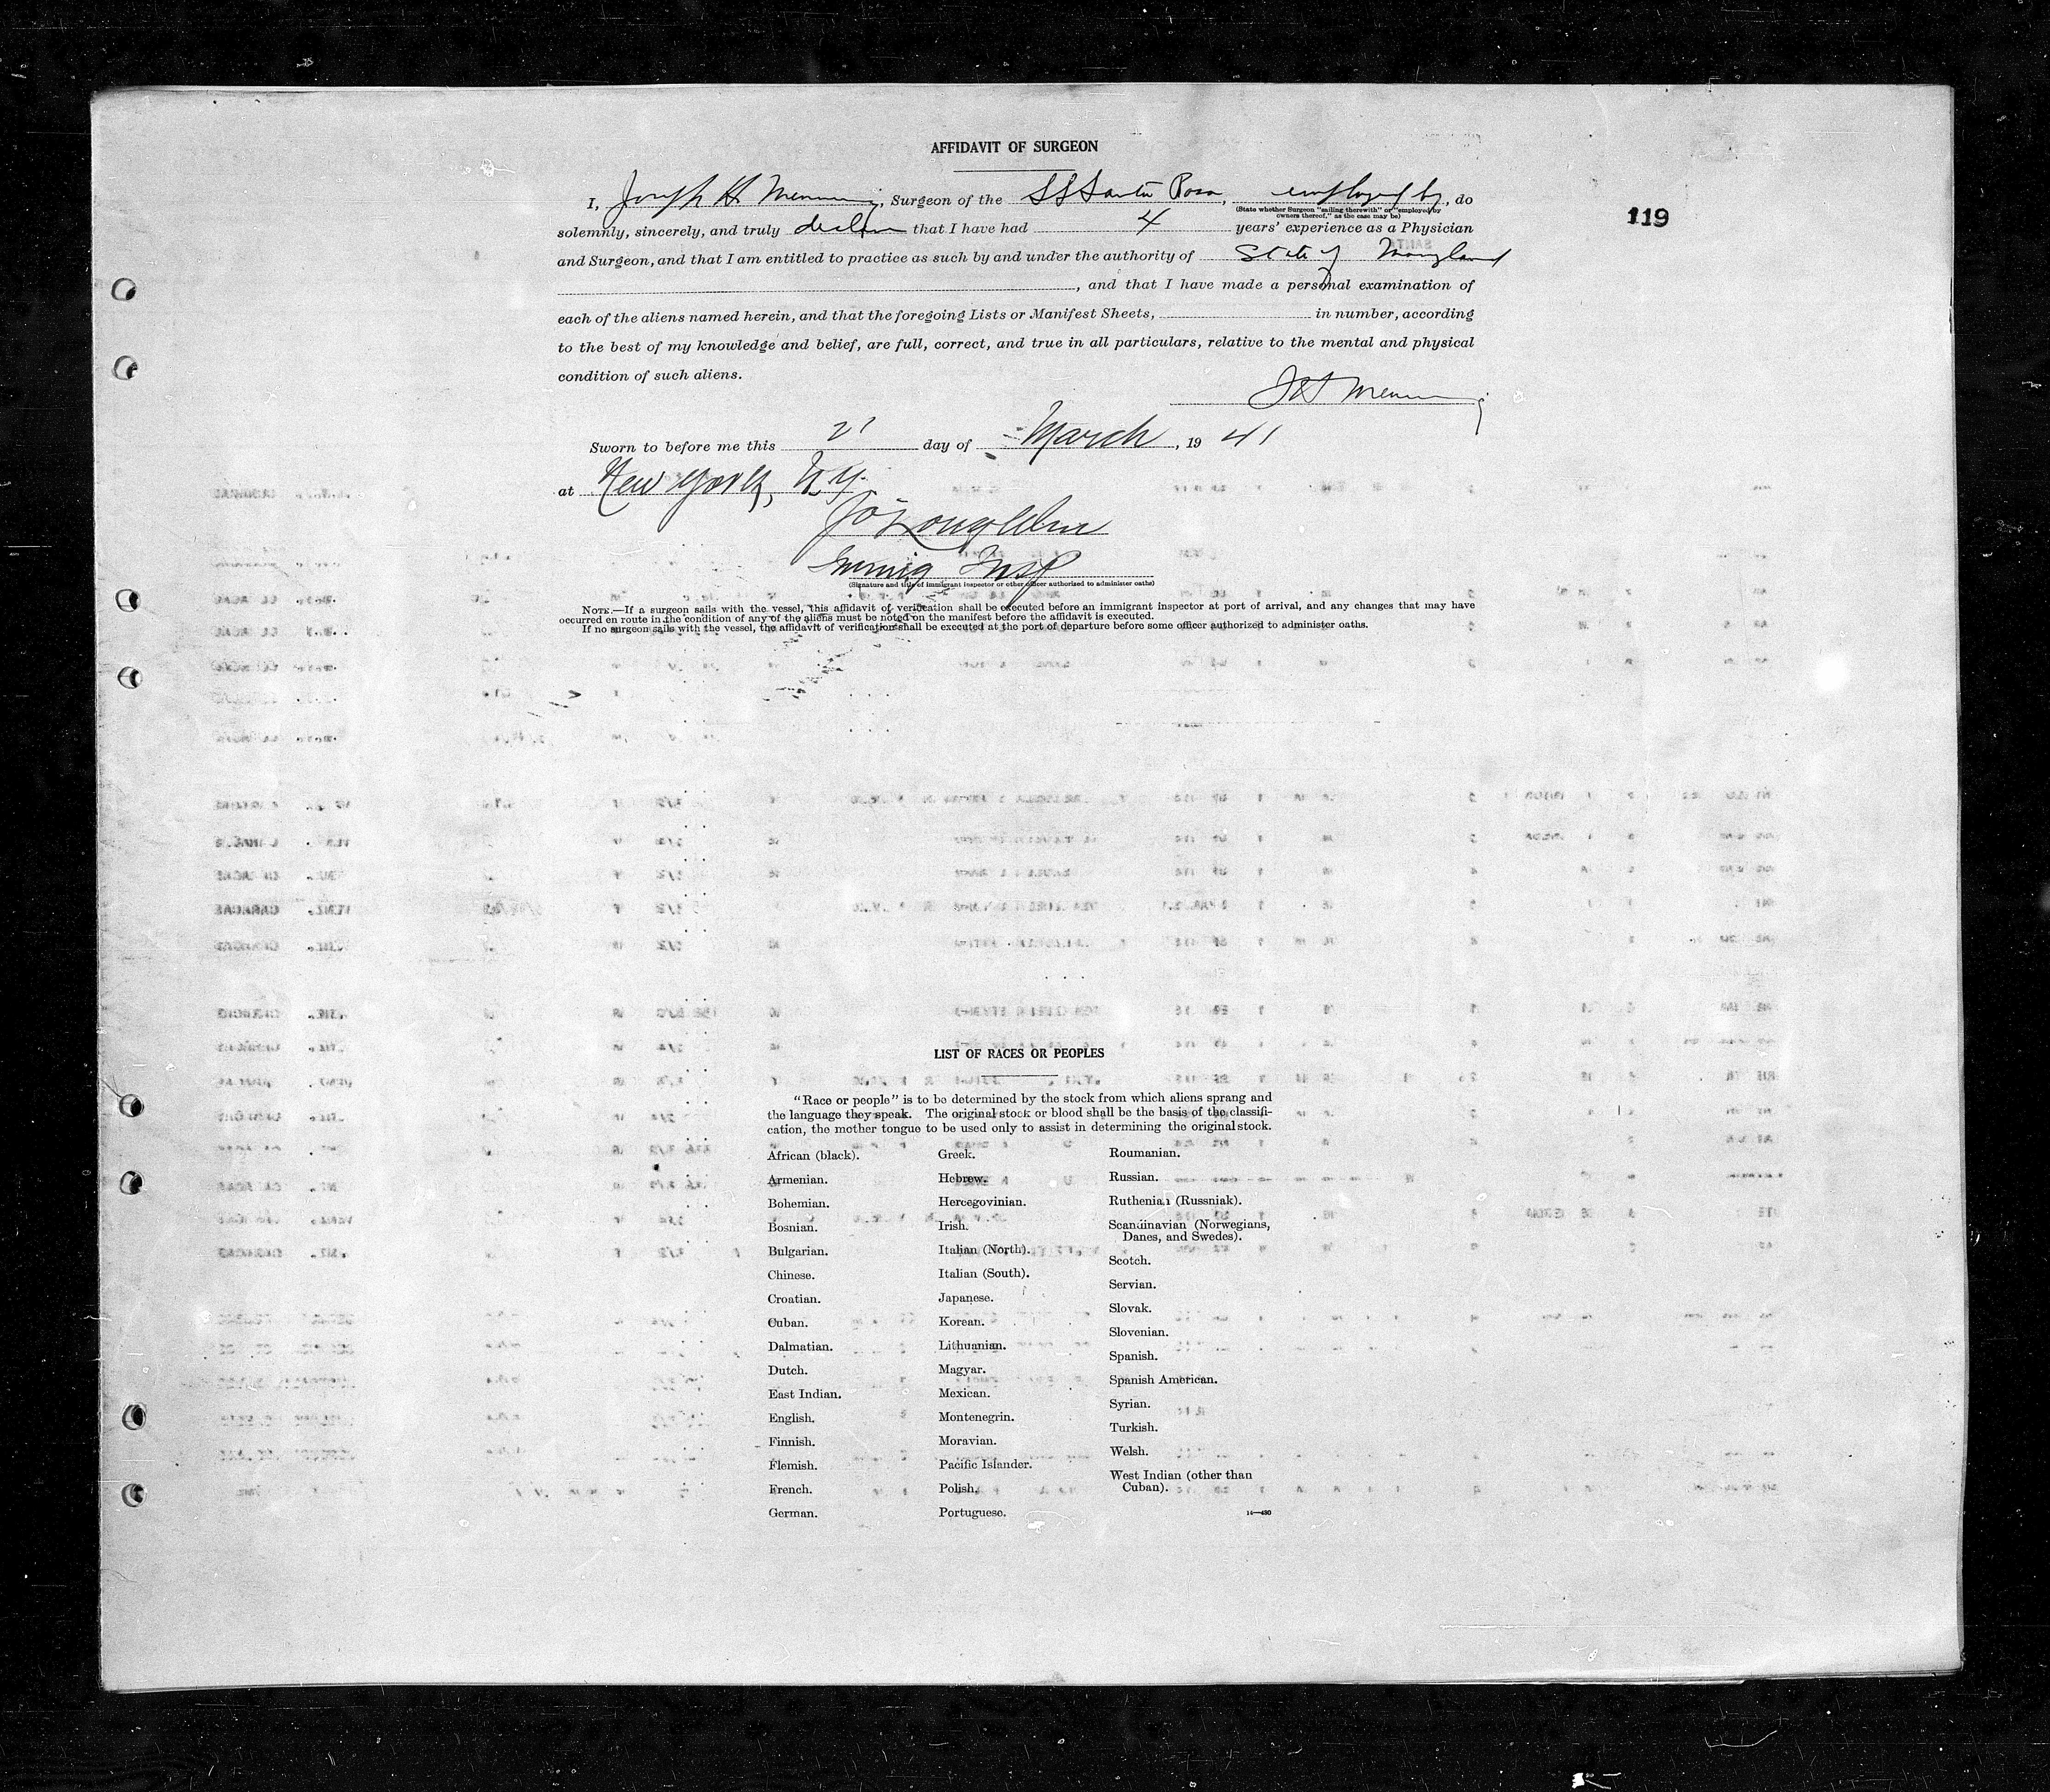 AFFIDAVIT OF SURGEON
119
I, Joseph H, Surgeon of the SS Santa Rosa, employed by, do
(State whether Surgeon "sailing therewith" or "employed by
owners thereof," as the case may be)
solemnly, sincerely, and truly declare that I have had 4 years' experience as a Physician
and Surgeon, and that I am entitled to practice as such by and under the authority of State of Maryland
, and that I have made a personal examination of
each of the aliens named herein, and that the foregoing Lists or Manifest Sheets, in number, according
to the best of my knowledge and belief, are full, correct, and true in all particulars, relative to the mental and physical
condition of such aliens.
Sworn to before me this 21 day of March, 19 41
at New York, N.Y.
Immig Insp
(Signature and title of immigrant inspector or other officer authorized to administer oaths)
NOTE.—If a surgeon sails with the vessel, this affidavit of verification shall be executed before an immigrant inspector at port of arrival, and any changes that may have
occurred en route in the condition of any of the aliens must be noted on the manifest before the affidavit is executed.
If no surgeon sails with the vessel, the affidavit of verification shall be executed at the port of departure before some officer authorized to administer oaths.
LIST OF RACES OR PEOPLES
"Race or people" is to be determined by the stock from which aliens sprang and
the language they speak. The original stock or blood shall be the basis of the classifi-
cation, the mother tongue to be used only to assist in determining the original stock.
African (black).
Armenian.
Bohemian.
Bosnian.
Bulgarian.
Chinese.
Croatian.
Cuban.
Dalmatian.
Dutch.
East Indian.
English.
Finnish.
Flemish.
French.
German.
Greek.
Hebrew.
Hercegovinian.
Irish.
Italian (North).
Italian (South).
Japanese.
Korean.
Lithuanian.
Magyar.
Mexican.
Montenegrin.
Moravian.
Pacific Islander.
Polish.
Portuguese.
Roumanian.
Russian.
Ruthenian (Russniak).
Scandinavian (Norwegians,
Danes, and Swedes).
Scotch.
Servian.
Slovak.
Slovenian.
Spanish.
Spanish American.
Syrian.
Turkish.
Welsh.
West Indian (other than
Cuban).
14—430